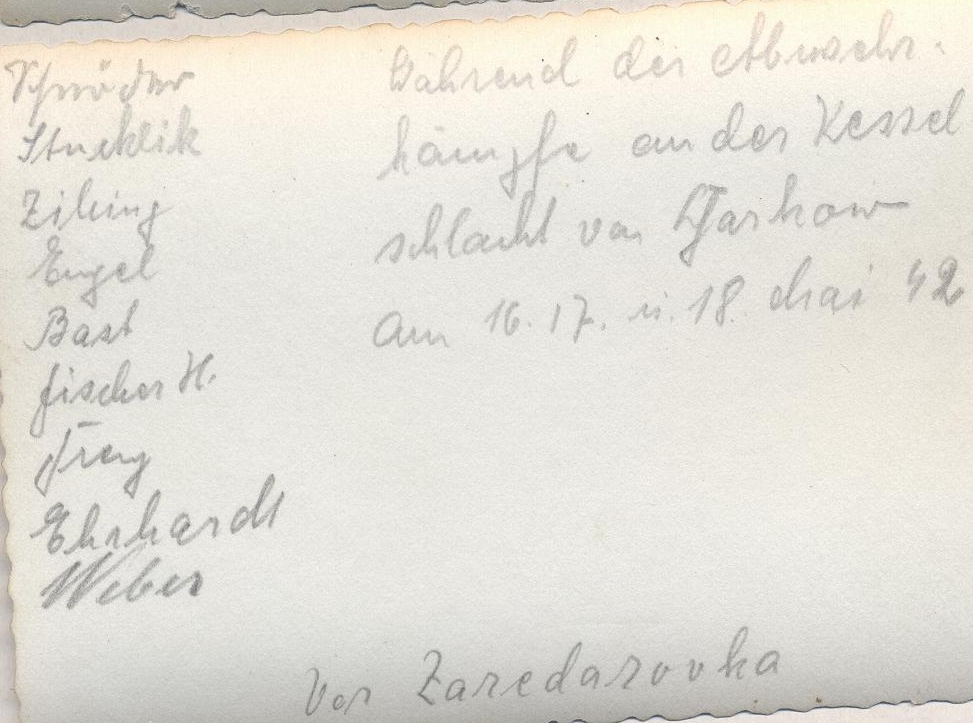 Schröder
Stucklik
Ziling
Engel
Bast
Fischer H.
Frey
Ehrhardt
Weber
Während der Abwehr-
kämpfe an der Kessel
schlacht von Charkow
Am 16. 17. u. 18. Mai 42
Vor Zaredarovka